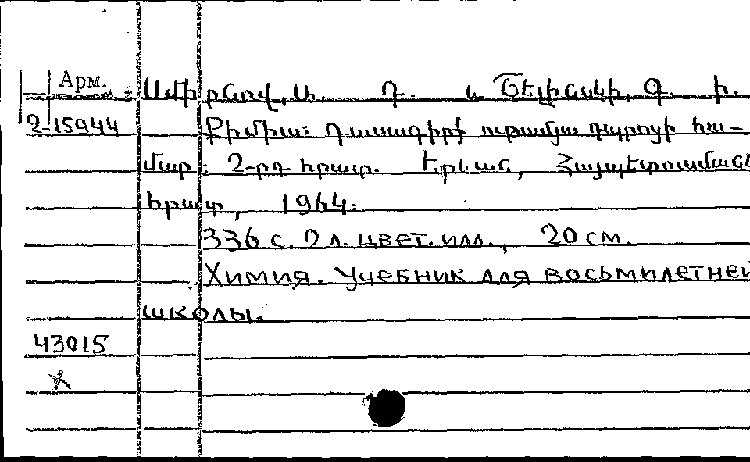 Арм.
Սմիրնով, Ա. Դ. և Շելինսկի, Գ. Ի.
2-15944 Քիմիա: Դասագիրք ութամյա դպրոցի հա-
մար: 2-րդ հրատ. Երևան, Հայպետուսմանկ
հրատ, 1964.
336 с. 2 л. цвет. илл., 20 см.
Химия. Учебник для восьмилетней
школы.
43015